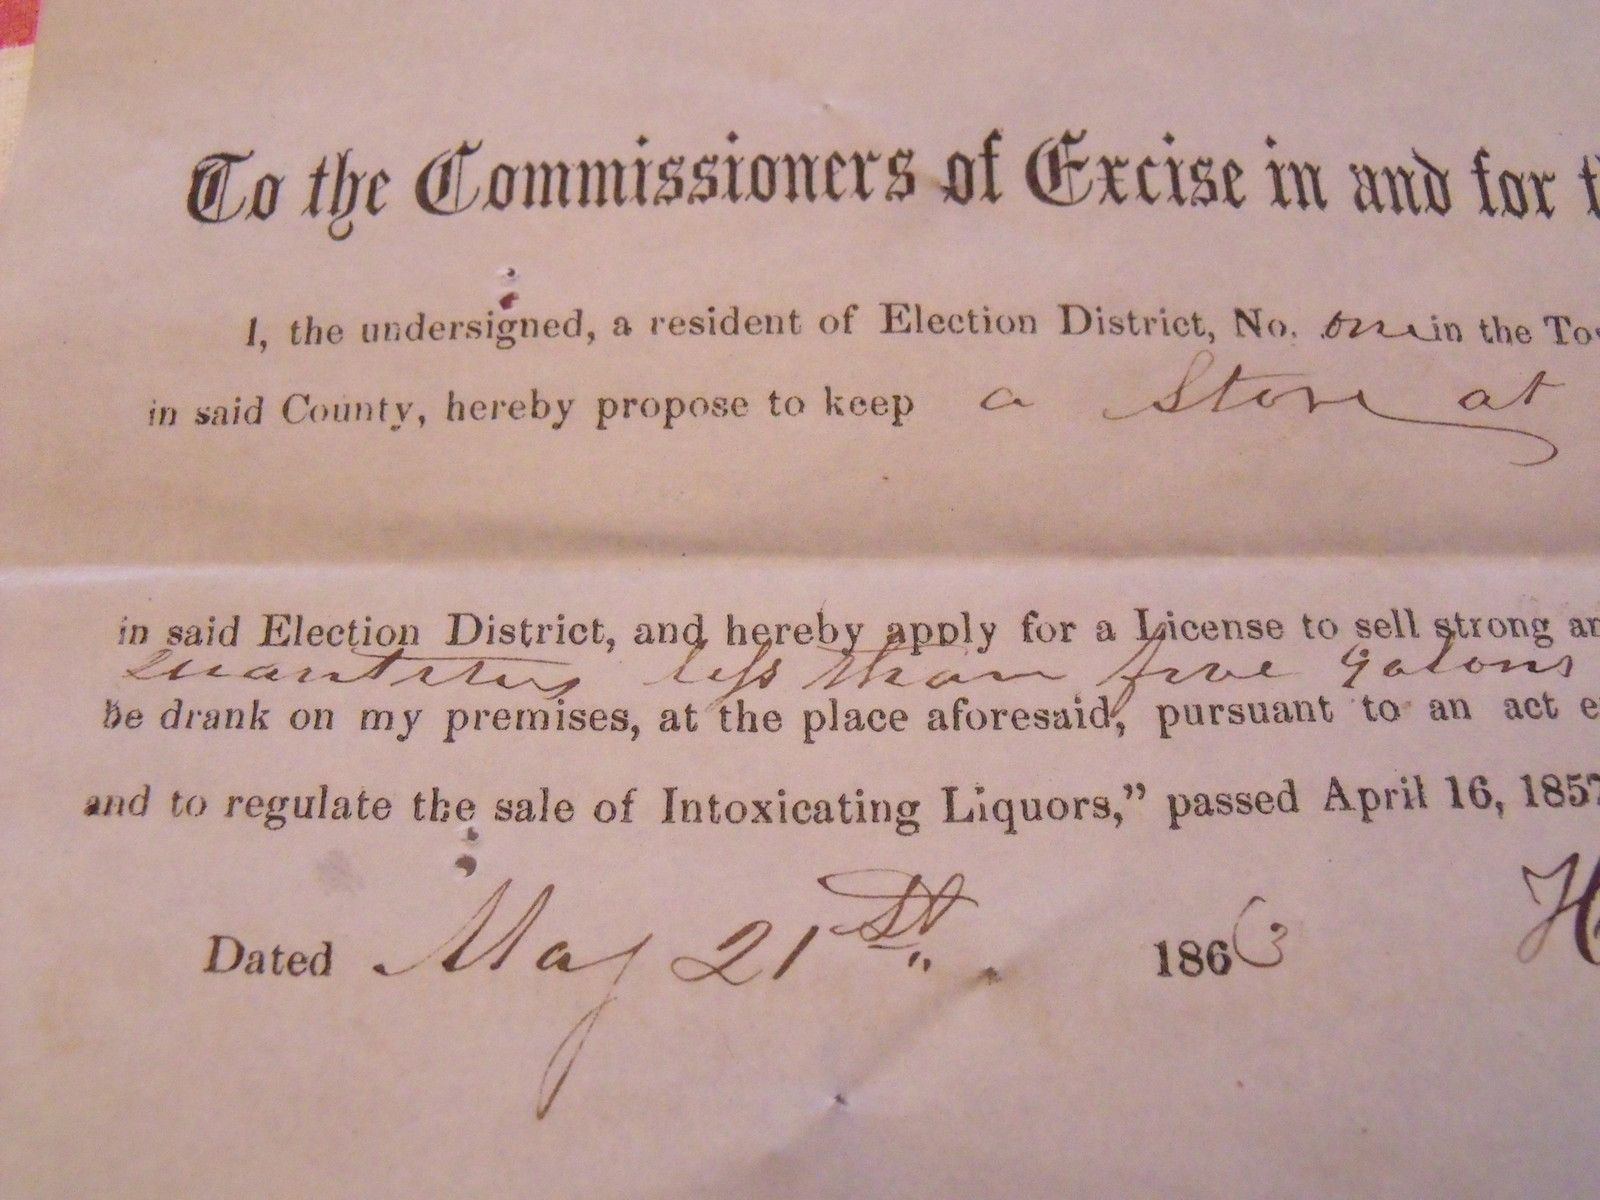 To the Commissioners of Excise in and for
I, the undersigned, a resident of Election District, No. one in the
in said County, hereby propose to keep a Store at
in said Election District, and hereby apply for a License to sell strong
quantitys less than five galons
be drank on my premises, at the place aforesaid, pursuant to an act
and to regulate the sale of Intoxicating Liquors," passed April 16, 1857
Dated May 21st 1863